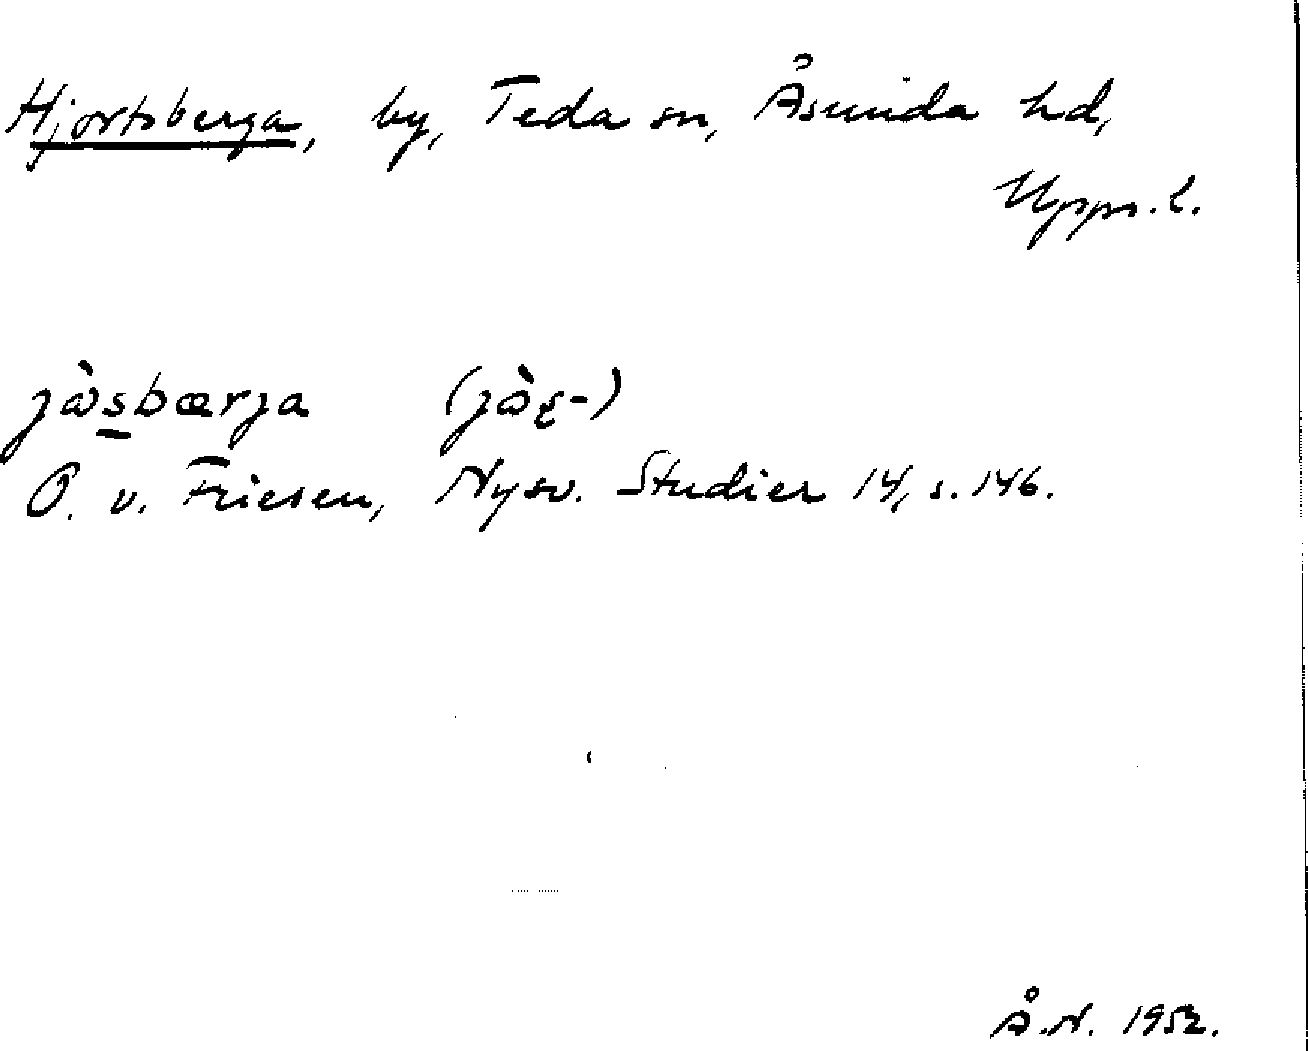 Hjortsberga, by, Teda sn, Åsunda hd,
Upps. l.
jɷ̀s̱bærja (jɷ̀ʂ-)
O. v. Friesen, Nysv. Studier 14, s. 146.
Å. N. 1952.